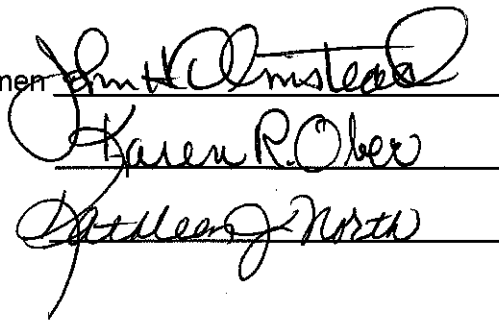 men John H Olmstead
Karen R. Ober
Kathleen J. North